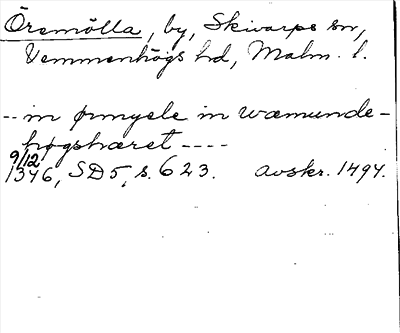 Öremölla, by, Skivarps sn,
Vemmenhögs hd, Malm. l.
-- in ørmyele in wæmunde-
høgshæret ----
9/12 1346, SD5, s. 623. avskr. 1494.